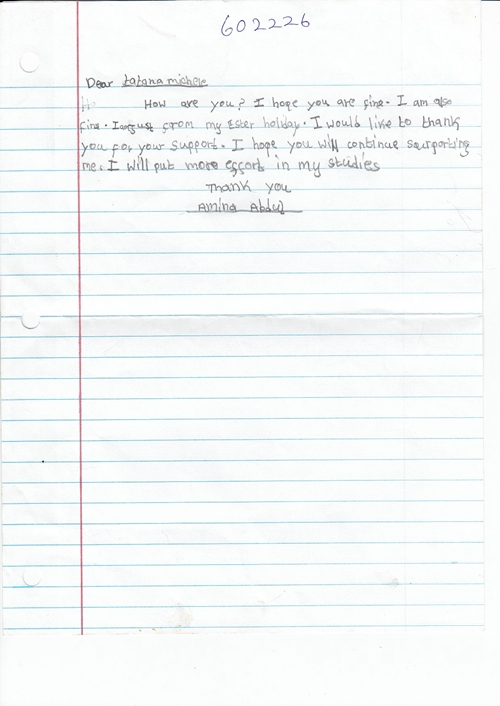 602226
Dear tatana michele
How are you? I hope you are fine. I am also
fine. I am just from my Ester holiday. I would like to thank
you for your support. I hope you will continue surporting
me. I will put more effort in my studies
Thank you
Amina Abdul